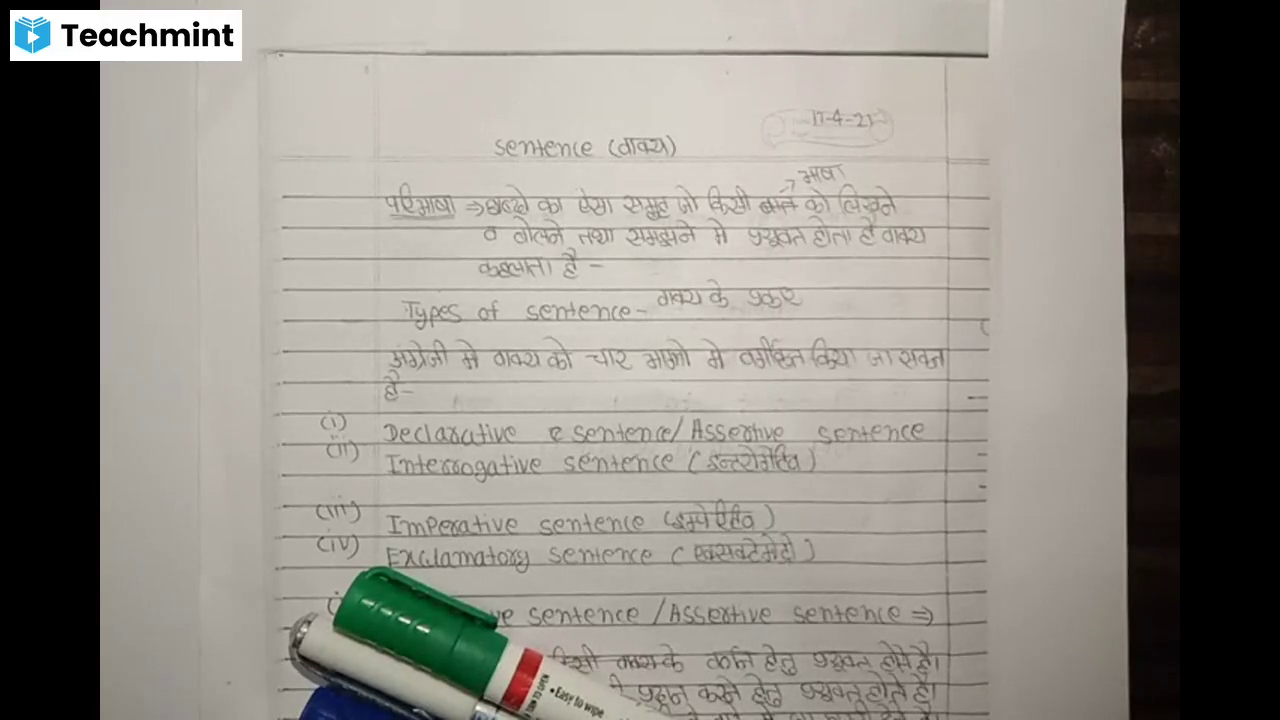 Teachmint
17-4-21
sentence (वाक्य)
→ भाषा
परिभाषा ⇒ शब्दो का ऐसा समुह जो किसी को लिखने
व बोलने तथा समझने मे प्रयुक्त होता है वाक्य
कहलाता है -
Types of sentence - वाक्य के प्रकार
अंग्रेजी मे वाक्य को चार भागो मे वर्गीकृत किया जा सकता
है-
(i) Declarative sentence/Assertive sentence
(ii) Interrogative sentence (इन्टरोगेटिव)
(iii) Imperative sentence (इम्पेरेटिव)
(iv) Exclamatory sentence (एक्सक्लेमेट्री)
ve sentence /Assertive sentence ⇒
किसी के करने हेतु प्रयुक्त होते है।
करने हेतु प्रयुक्त होते है।
• Easy to wipe